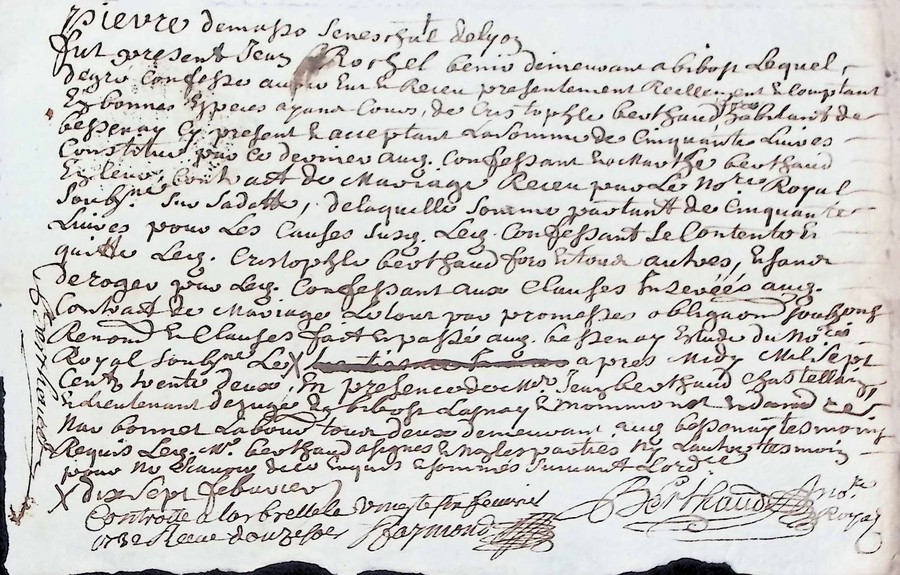 pierre demasso seneschal delyon
fut present Jean Rochel benis demeurant a bibost Lequel
degré Confesse avoir Eut & Receu presentement Reellement & Comptant
En bonnes Especes ayant Cours, de Cristophle berthaud habitant de
bessenay Cy present & acceptant La somme de Cinquante Livres
Constitué par ce dernier aud. Confessant & a Marthe berthaud
En leur Contract de Mariage Receu par Le No.re Royal
soubs.ne sur sadatte, delaquelle somme partant de Cinquante
Livres pour Les Causes susd. Led. Confessant se Contente &
quitte Led. Cristophle berthaud & tous autres, & sans
deroger par Led. Confessant aux Clauses Inserées aud.
Contrat de Mariage Le tout par promesses obligaons soubzons
Renonc & Clauses fait & passé aud. bessenay Etude du No.re
Royal soubsne Le X apres Midy Mil sept
Cent vente deux, En presence de Mr Jean berthaud Chastellain
& Lieutenant de juge de bibost &
bonnet Laboureur tous deux demeurant aud bessenay tesmoins
Requis Led. Mr. berthaud a signé & non les parties Ny Lautre tesmoin
pour ne scavoir de ce Enquis & sommés suivant Lord.ce
X dix sept febvrier
Controllé a Larbresle le vingt febvrier
1732 Receu douze sols Raymond
Berthaud no.re
Royal
Berthaud